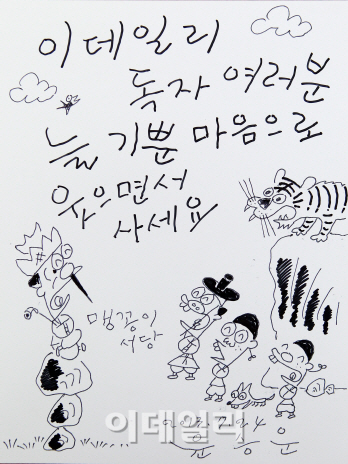 이데일리
독자 여러분
늘 기뿐 마음으로
웃으면서
사세요
맹꽁이
서당
이데일리
윤승운